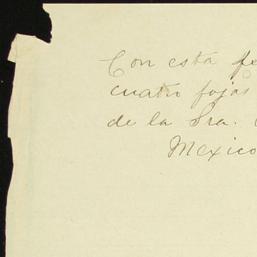 Con esta fe
cuatro fojas
de la Sra.
Mexico